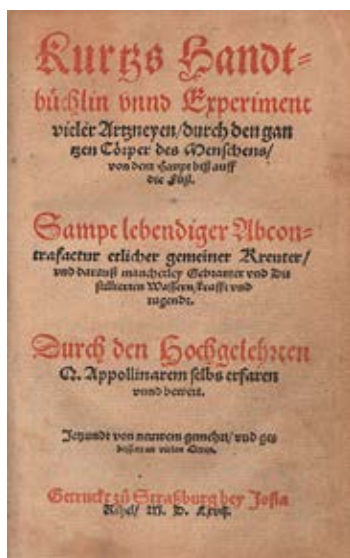 Kurtzs Handt⸗
büchlin vnnd Experiment
vieler Artzneyen/durch den gan
tzen Cörper des Menschens/
von dem Haupt biß auff
die Füß.
Sampt lebendiger Abcon⸗
trafactur etlicher gemeiner Kreuter/
vnd darauß mancherley Gebranter vnd Di
stillierten Wassern/krafft vnd
tugendt.
Durch den Hochgelehrten
Q. Appollinarem selbs erfaren
vnnd bewert.
Jetzundt von neuwem gemehrt/vnd ge⸗
bessert an vielen
Getruckt zů Straßburg bey Josia
Rihel/ M. D.